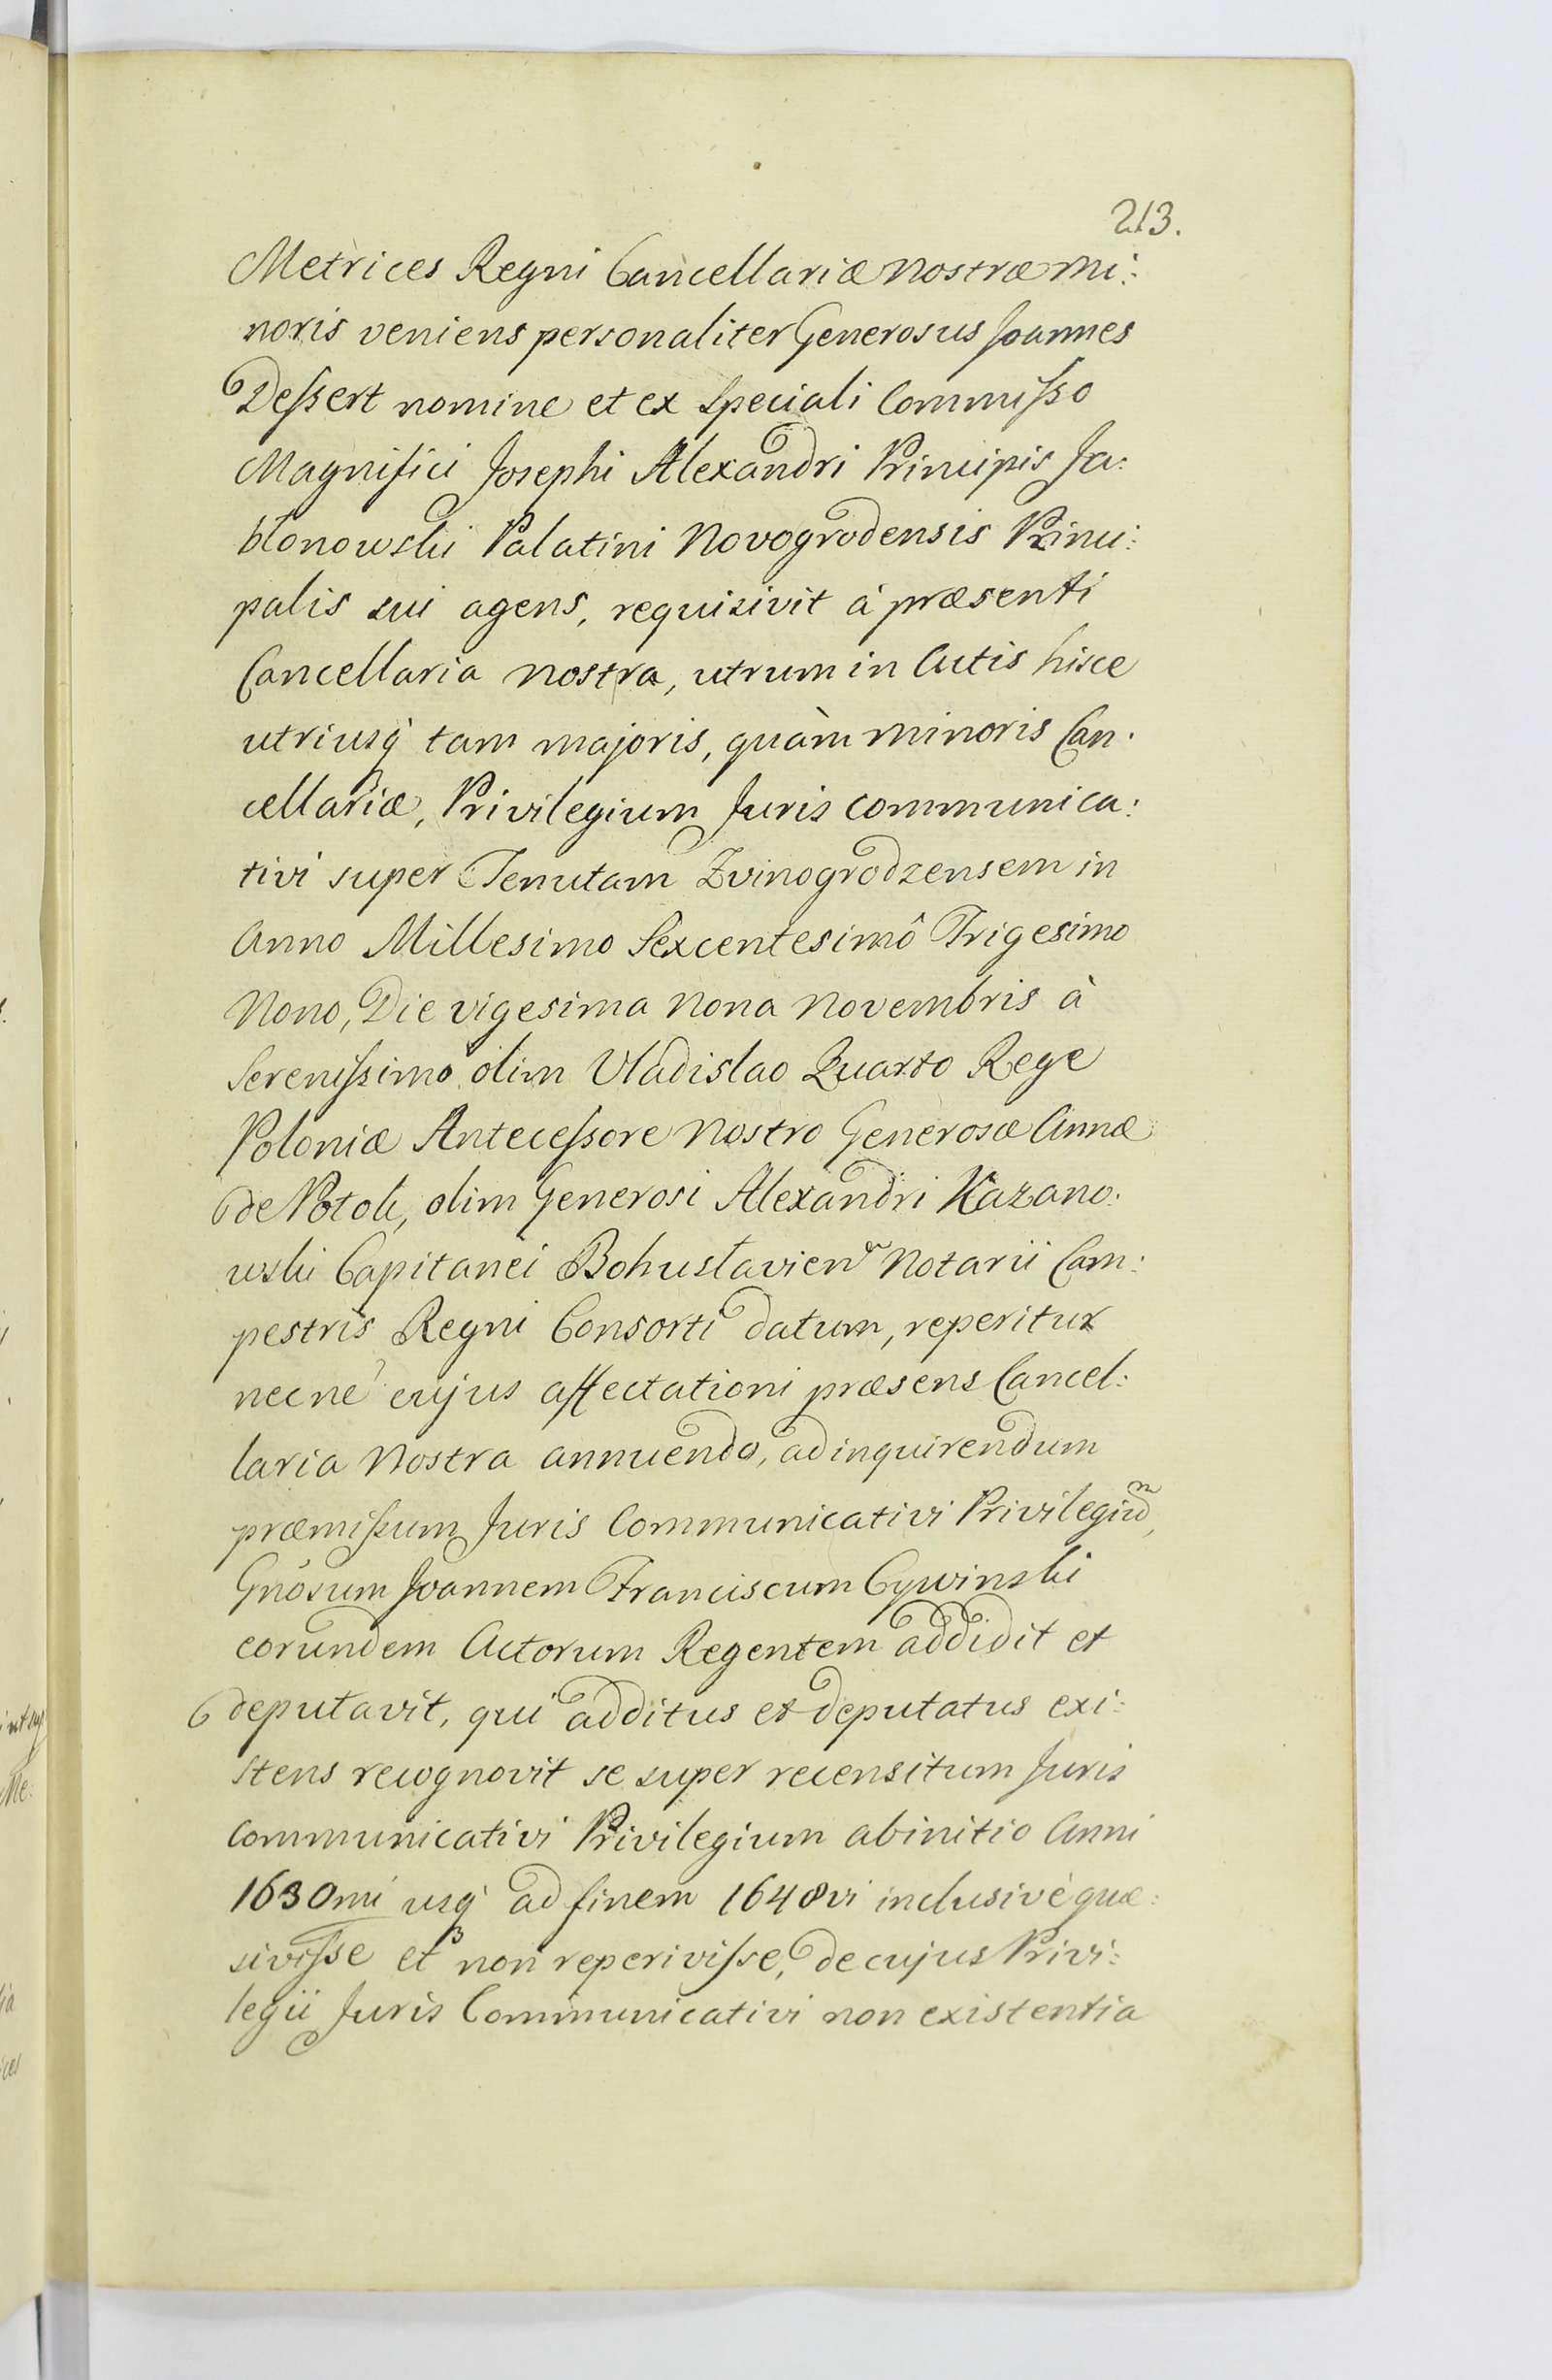 213.
Metrices Regni Cancellariæ nostræ mi:
noris veniens personaliter Generosus Joannes
Dessert nomine et ex speciali Commisso
Magnifici Josephi Alexandri Principis Ja:
blonowski Palatini Novogrodensis Princi:
palis sui agens, requisivit à præsenti
Cancellaria nostra, utrum in Actis hisce
utriusq̀ tam majoris, quàm minoris Can:
cellariæ, Privilegium Juris communica:
tivi super Tenutam Zvinogrodzensem in
Anno Millesimo Sexcentesimô Trigesimo
Nono, Die vigesima nona Novembris à
Serenissimo olim Vladislao Quarto Rege
Poloniæ Antecessore Nostro Generosæ Annæ
de Potok, olim Generosi Alexandri Kazano:
wski Capitanei Bohuslavien Notarii Cam:
pestris Regni Consorti datum, reperitur
necne? cujus affectationi præsens Cancel:
laria Nostra annuendo, ad inquirendum
præmissum Juris Communicativi Privilegiũ,
Gnosum Joannem Franciscum Cywinski
eorundem Actorum Regentem addidit et
deputavit, qui additus et deputatus exi:
stens recognovit se super recensitum Juris
communicativi Privilegium ab initio Anni
1630mi usq̀ ad finem 1648vi inclusivè quæ:
sivisse et non reperivisse, de cujus Privi:
legii Juris Communicativi non existentia